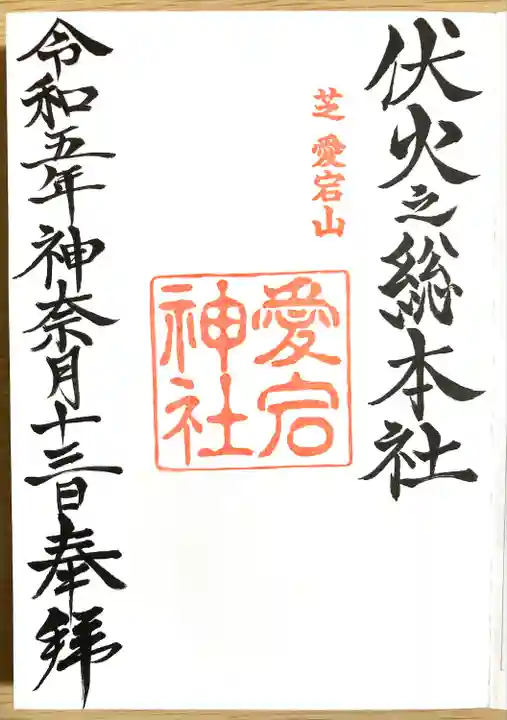 伏火之総本社
芝 愛宕山
愛宕
神社
令和五年神奈月十三日奉拜